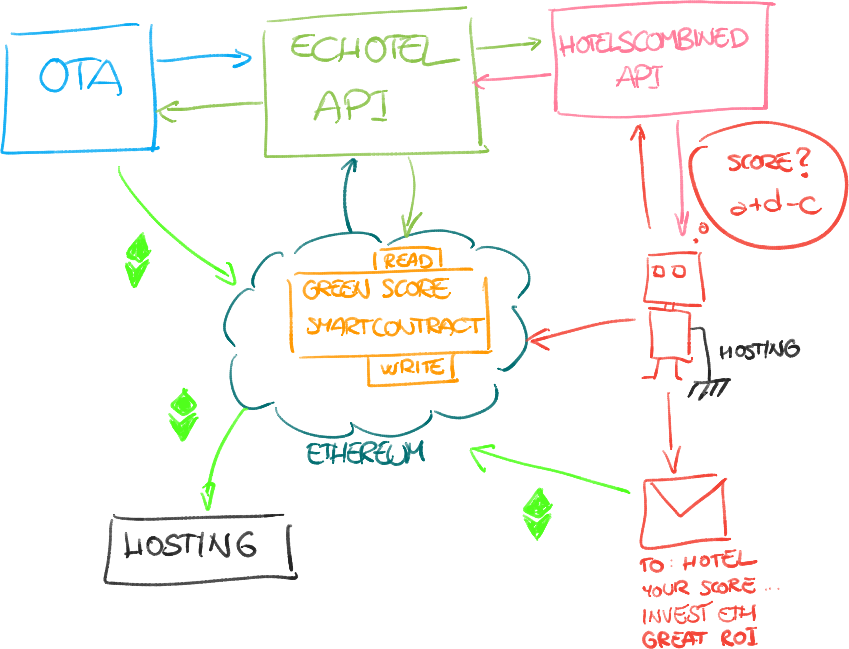 OTA
ECHOTEL
API
HOTELSCOMBINED
API
SCORE?
a+d-c
READ
GREEN SCORE
SMARTCONTRACT
WRITE
ETHEREUM
HOSTING
HOSTING
TO: HOTEL
YOUR SCORE...
INVEST ETH
GREAT ROI